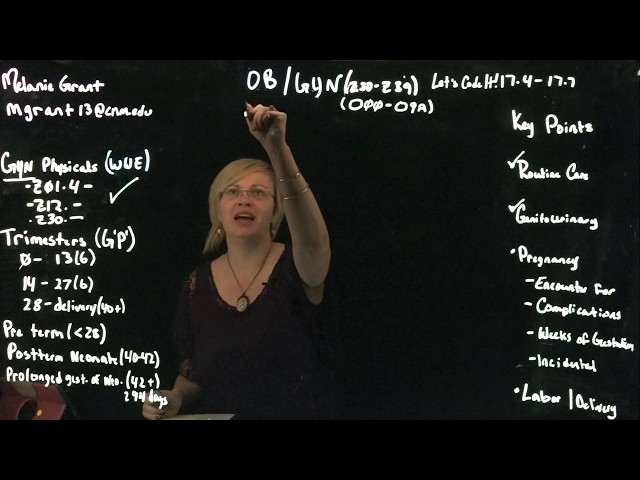 Melanie Grant
mgrant13@cnm.edu
OB/GYN (Z30-Z39) Let's Code It! 17.4-17.7
(OØØ-O9A)
GYN Physicals (WWE)
-ZØ1.4-
-Z12.-
-Z30.-
Trimesters (G'P')
Ø-13(6)
14-27(6)
28-delivery(40+)
Pre term (<28)
Postterm Neonate (40-42)
Prolonged gest. of Neo. (42+)
294 days
Key Points
✓Routine Care
✓Genitourinary
•Pregnancy
-Encounter for
-Complications
-Weeks of Gestation
-Incidental
•Labor/Delivery